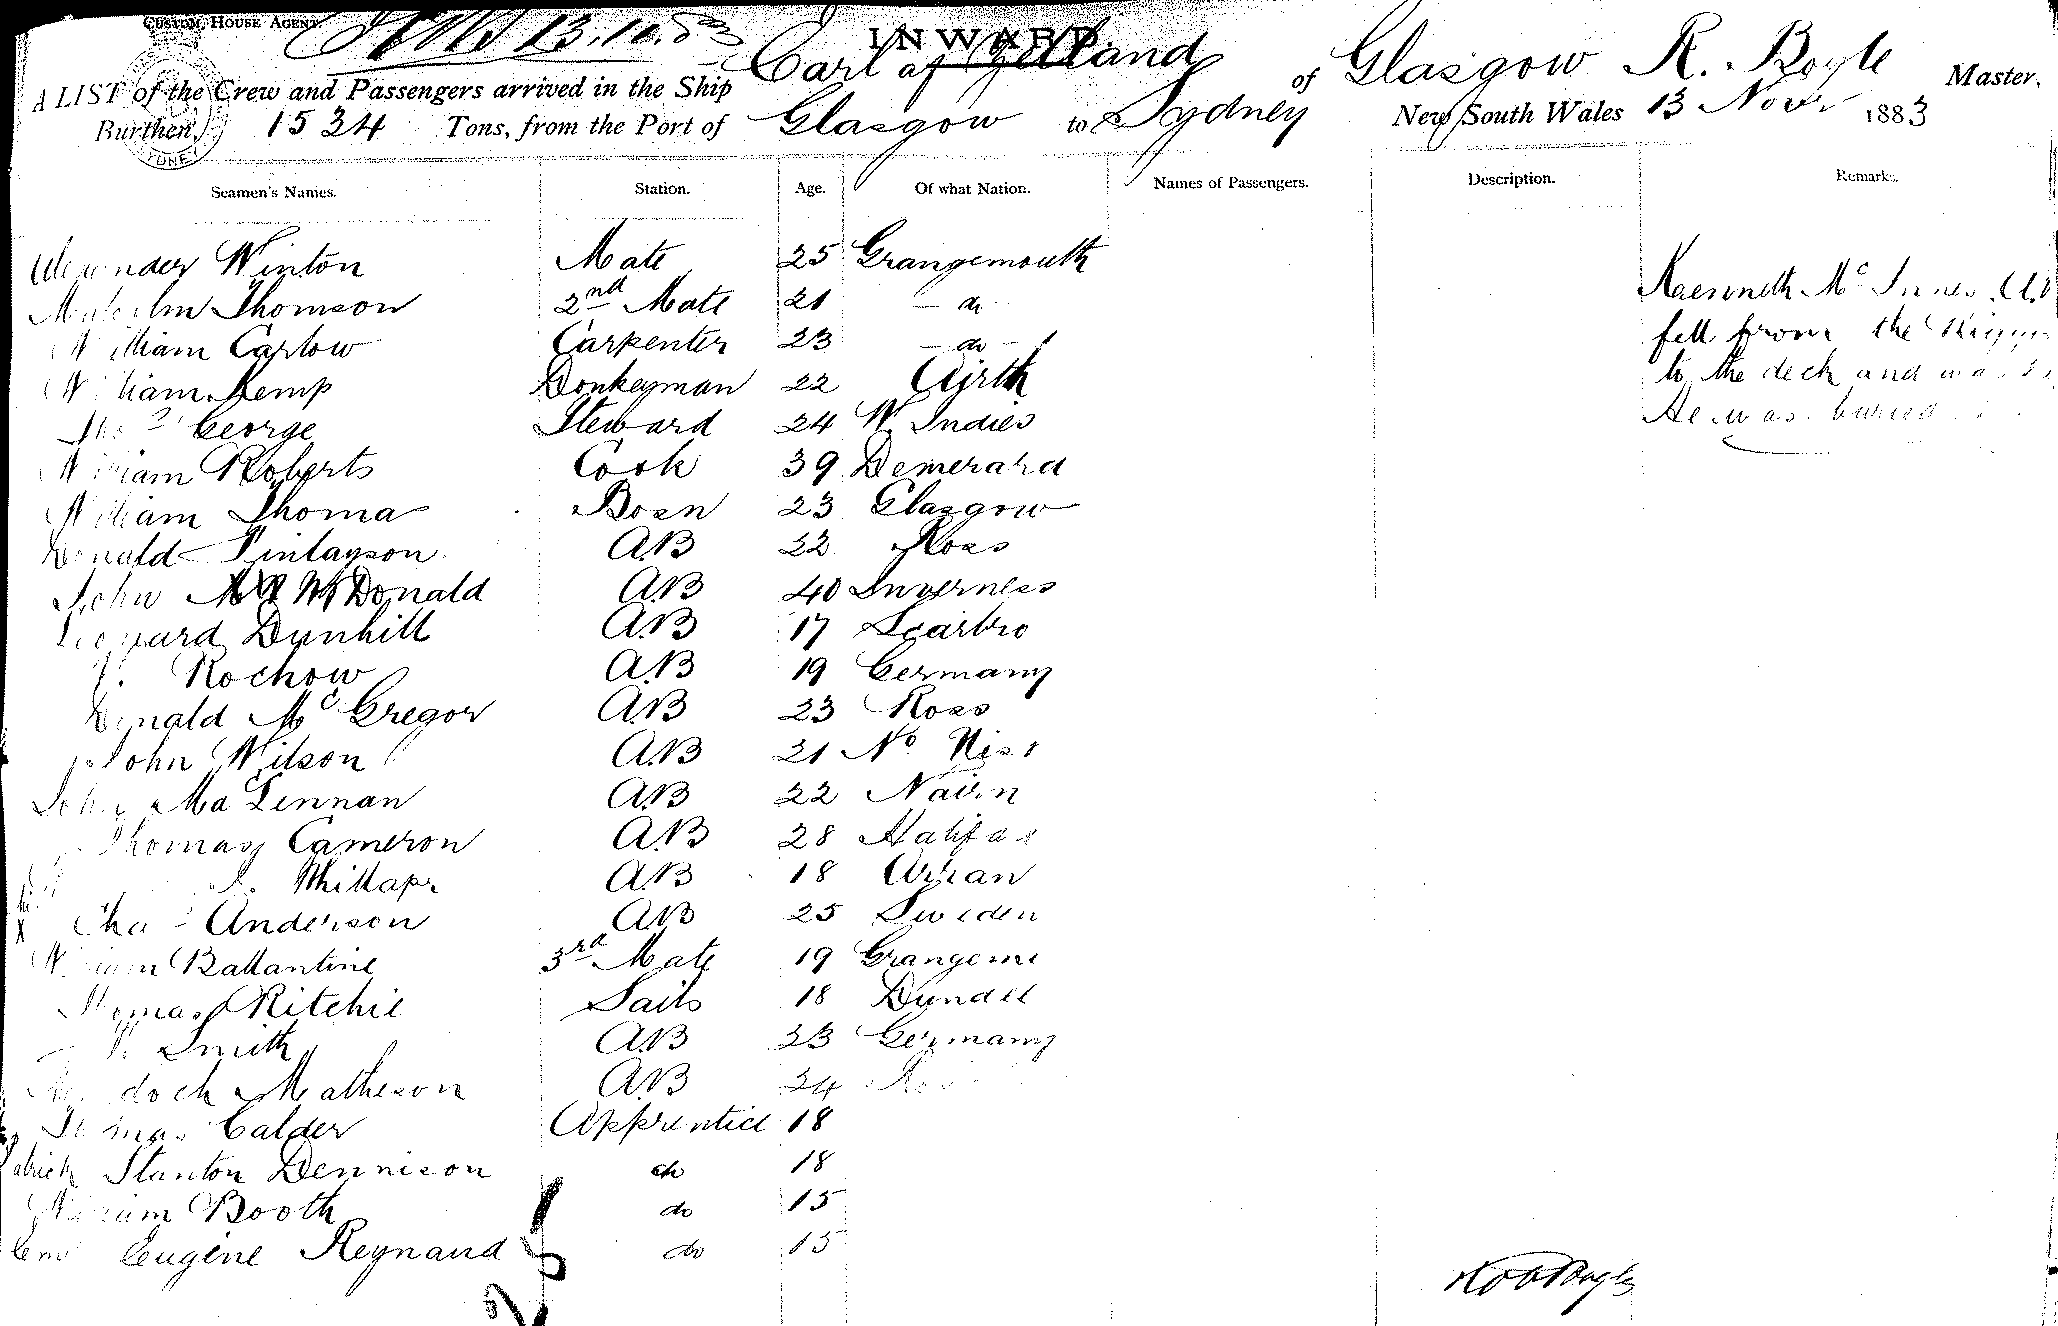 CUSTOM HOUSE AGENT.
13.10.83
INWARD.
A LIST of the Crew and Passengers arrived in the Ship Earl of of Glasgow R. Boyle Master,
Burthen, 1534 Tons, from the Port of Glasgow to Sydney New South Wales 13 Novr 1883
Seamen's Names. Station. Age. Of what Nation. Names of Passengers. Description. Remarks.
Alexander Winton Mate 25 Grangemouth
Malcolm Thomson 2nd Mate 21 — do
William Carlow Carpenter 23 — do —
William Kemp Donkeyman 22 Airth
Thos George Steward 24 W. Indies
William Roberts Cook 39 Demerara
William Thoma Bosn 23 Glasgow
Donald Finlayson AB 22 Ross
John McDonald AB 40 Inverness
Leonard Dunhill AB 17 Scarbro
Rochow AB 19 Germany
Donald McGregor AB 23 Ross
John Wilson AB 21 No Uist
John MaLennan AB 22 Nairn
Thomas Cameron AB 28 Halifax
AB 18 Arran
X Chas Anderson AB 25 Sweden
William Ballantine 3rd Mate 19 Grangemo
Thomas Ritchie Sails 18 Dundee
Smith AB 23 Germany
Murdoch Matheson AB 24 Ross
Thomas Calder Apprentice 18
Patrick Stanton Dennison do 18
William Booth do 15
Eugene Reynaud do 15
Kaenneth McInnes A.B
fell from the
to the deck and was
He was buried
25
Rob Boyle